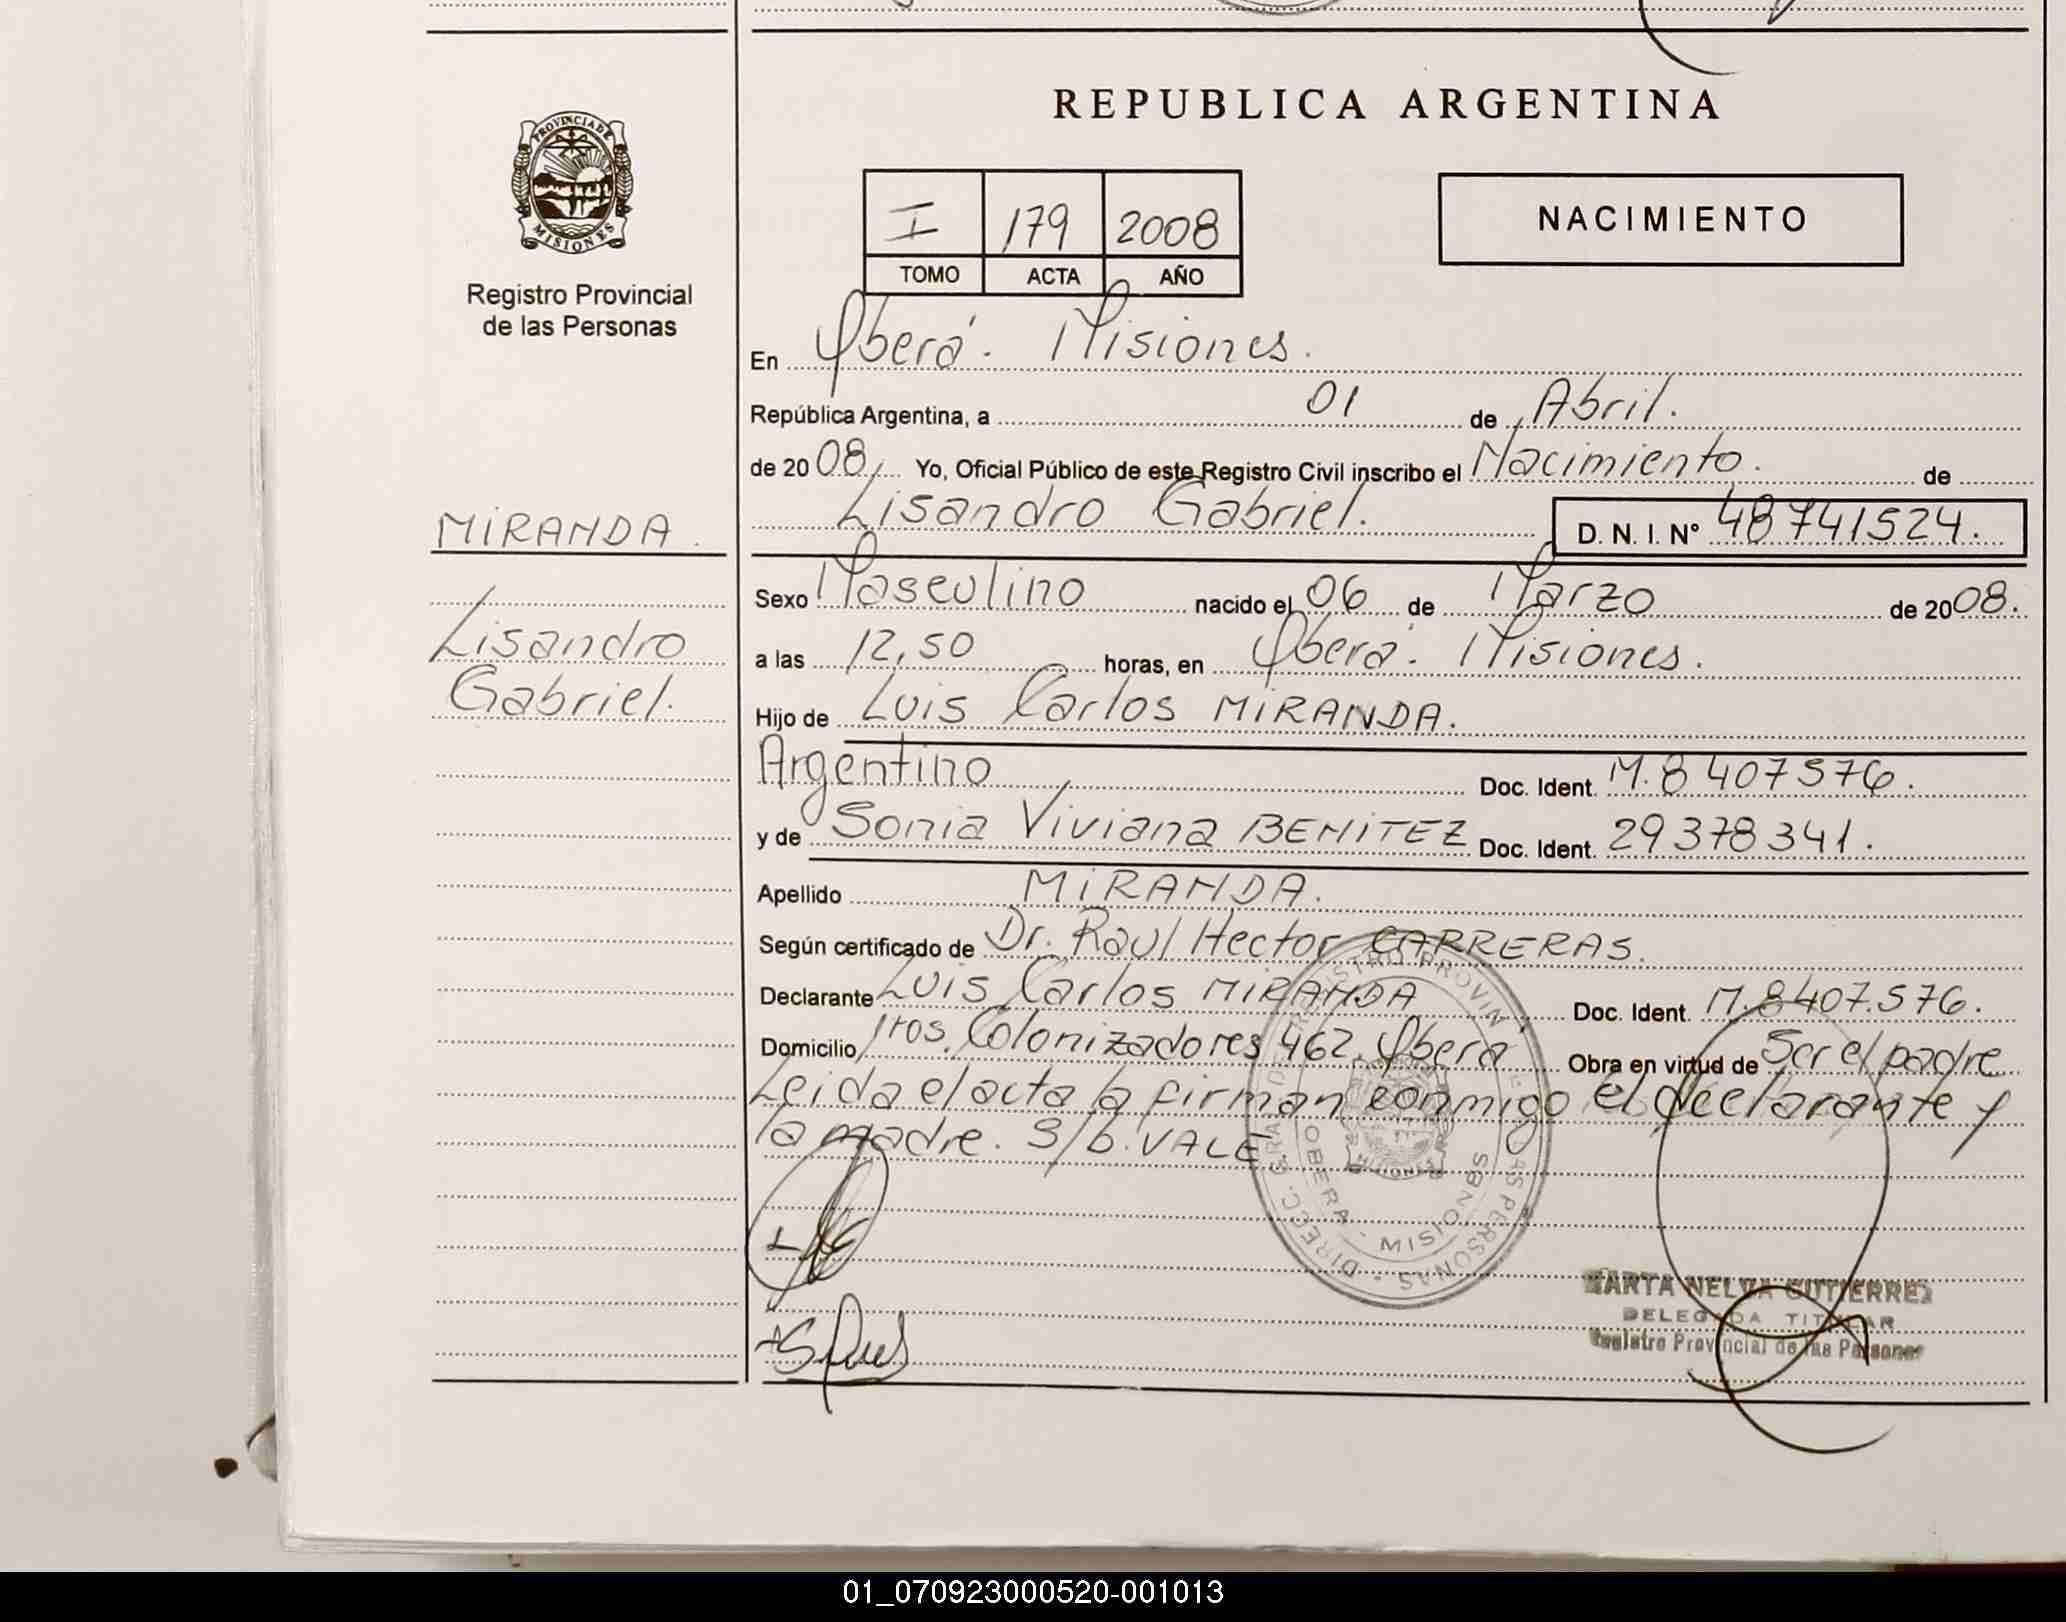 REPUBLICA ARGENTINA
PROVINCIA DE
MISIONES
Registro Provincial
de las Personas
I 179 2008
TOMO ACTA AÑO
NACIMIENTO
En Oberá. Misiones.
República Argentina, a 01 de Abril.
de 2008, Yo, Oficial Público de este Registro Civil inscribo el Nacimiento. de
Lisandro Gabriel. D. N. I. Nº 48741524.
MIRANDA.
Lisandro
Gabriel.
Sexo Masculino nacido el 06 de Marzo de 2008.
a las 12,50 horas, en Oberá. Misiones.
Hijo de Luis Carlos MIRANDA.
Argentino Doc. Ident. M. 8407576.
y de Sonia Viviana BENITEZ Doc. Ident. 29378341.
Apellido MIRANDA.
Según certificado de Dr. Raul Hector CARRERAS.
Declarante Luis Carlos MIRANDA Doc. Ident. M. 8407.576.
Domicilio Colonizadores 462. Oberá Obra en virtud de Ser el padre
Leida el acta la firman conmigo el declarante y
la madre. S/b. VALE.
OBERA - MISIONES
MARTA NELVA GUTIERREZ
DELEGADA TITULAR
Registro Provincial de las Personas
01_070923000520-001013